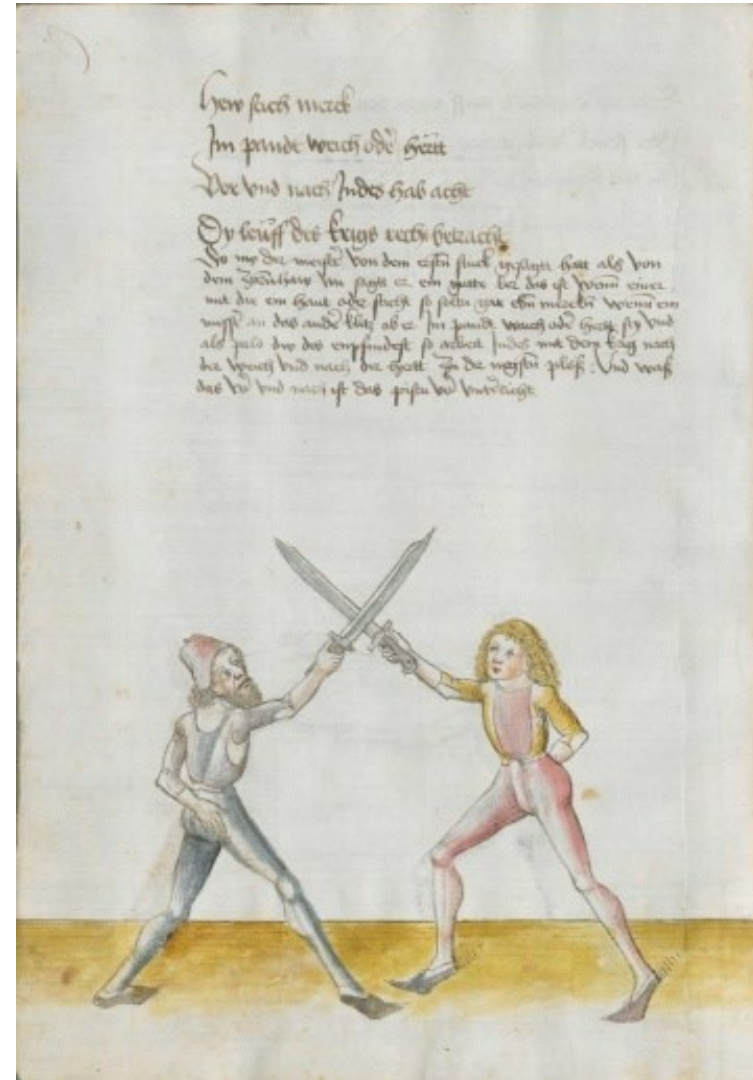 Hew stich merck
Im pandt weich oder hertt
Vor vnd nach Jndes hab acht
Dy leuff des krigs recht betracht
So der meister von dem erstn stuck gesagtt hatt als von
dem zornhaw sagtt er ein gutte ler das ist wenn einer
mit dir ein haut oder sticht so soltu gar ebn merckn wenn ein
messer an das ander klitz ob er Im pandt waich oder hertt sey vnd
als pald du das enpfindest so arbeit Jndes mit dem krig nach
der weich vnd nach der hertt zu der negstn plöß vnd was
das vor vnd nach ist das